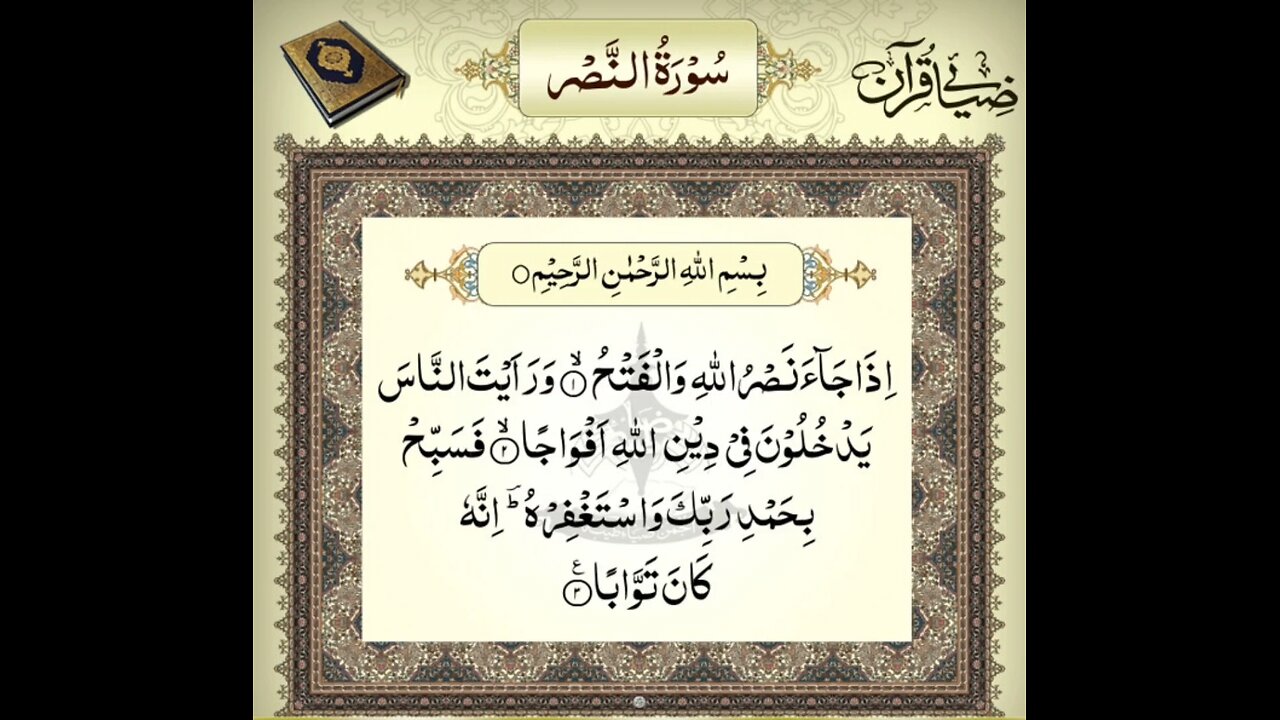 سُوْرَةُ النَّصْر
ضیائے قُرآن
بِسْمِ اللهِ الرَّحْمٰنِ الرَّحِيْمِ○
اِذَا جَآءَ نَصْرُ اللهِ وَالْفَتْحُ ۙ﴿۱﴾ وَرَاَيْتَ النَّاسَ
يَدْخُلُوْنَ فِيْ دِيْنِ اللهِ اَفْوَاجًا ۙ﴿۲﴾ فَسَبِّحْ
بِحَمْدِ رَبِّكَ وَاسْتَغْفِرْهُ ؕ اِنَّهٗ
كَانَ تَوَّابًا ﴿۳﴾ ع